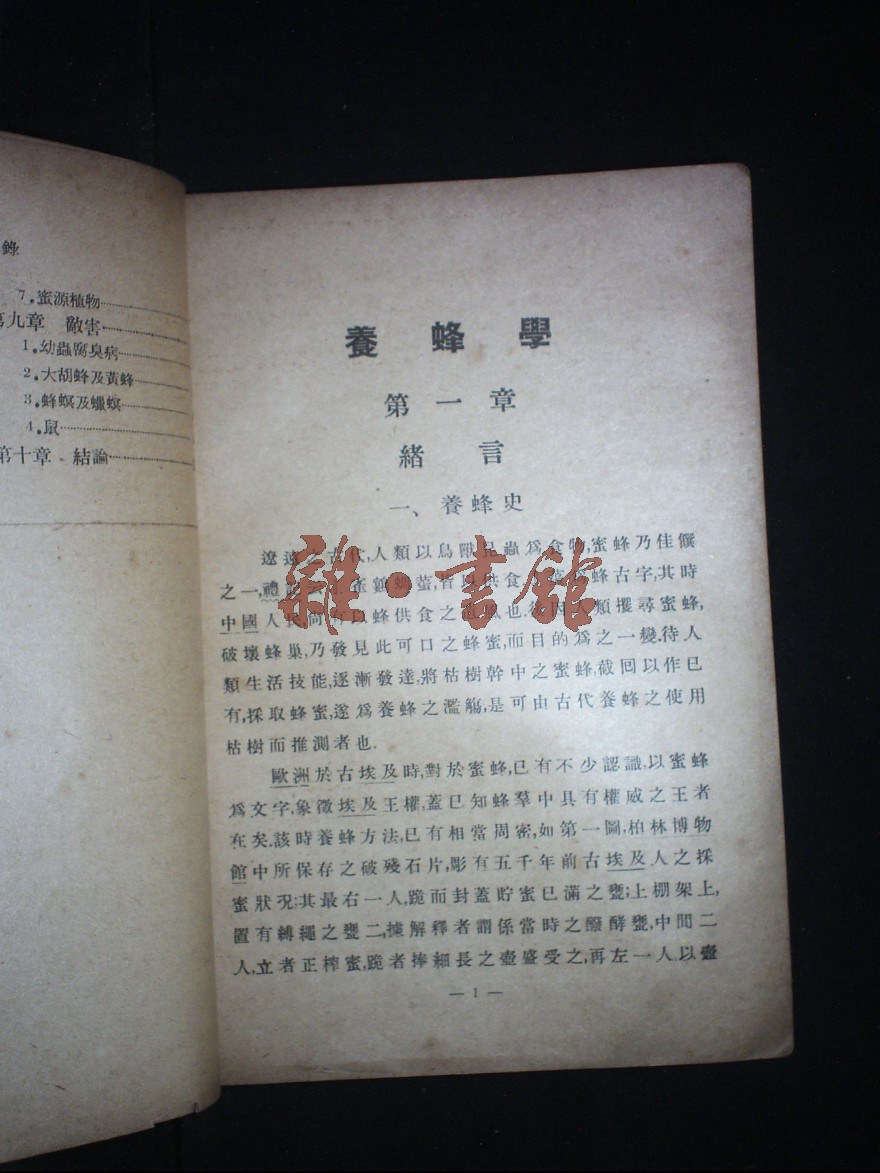 錄
7.蜜源植物
第九章 敵害
1.幼蟲腐臭病
2.大胡蜂及黃蜂
3.蜂螟及蠟螟
4.鼠
第十章 結論
養蜂學
第一章
緒言
一、養蜂史
遼遠之古代,人類以鳥獸昆蟲爲食物,蜜蜂乃佳饌
之一,禮 皆以供食 蜂古字,其時
中國人民,尚有以蜂供食之 也.後因人類攫尋蜜蜂,
破壞蜂巢,乃發見此可口之蜂蜜,而目的爲之一變.待人
類生活技能,逐漸發達,將枯樹幹中之蜜蜂,截囘以作已
有,採取蜂蜜,遂爲養蜂之濫觴,是可由古代養蜂之使用
枯樹而推測者也.
歐洲於古埃及時,對於蜜蜂,已有不少認識,以蜜蜂
爲文字,象徵埃及王權,蓋已知蜂羣中具有權威之王者
在矣.該時養蜂方法,已有相當周密,如第一圖,柏林博物
館中所保存之破殘石片,彫有五千年前古埃及人之採
蜜狀况;其最右一人,跪而封蓋貯蜜已滿之甕;上棚架上,
置有縛繩之甕二,據解釋者謂係當時之醱酵甕,中間二
人,立者正榨蜜,跪者捧細長之壺盛受之,再左一人.以壺
— 1 —
雜·書館